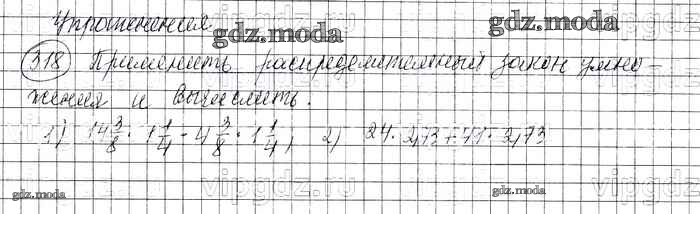 Упражнения
gdz.moda gdz.moda
318 Применить распределительный закон умно-
жения и вычислить.
1) 14 3/8 · 1 1/4 - 4 3/8 · 1 1/4; 2) 24 · 2,73 + 41 · 2,73
vipgdz.ru
gdz.moda gdz.moda